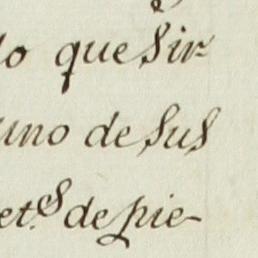 lo que Sir-
uno de sus
et.es de pie-